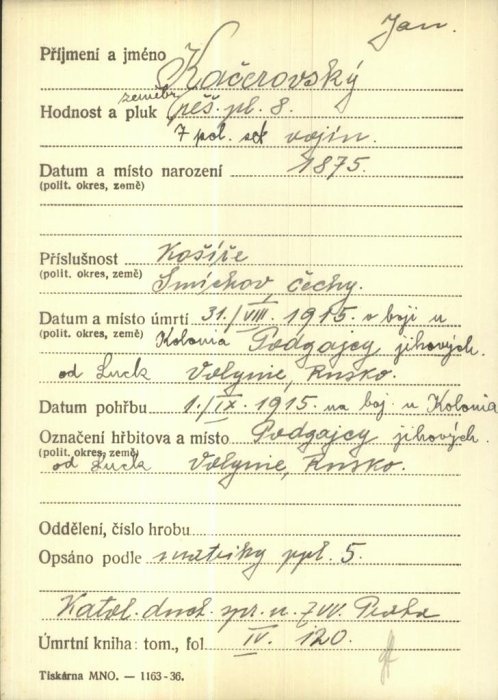 Jan.
Příjmení a jméno Kačerovský
zeměbr.
Hodnost a pluk pěš. pl. 8.
7 pol. set. vojín.
Datum a místo narození 1875.
(polit. okres, země)
Příslušnost Košíře
(polit. okres, země) Smíchov, Čechy.
Datum a místo úmrtí 31./VIII. 1915. v boji u
(polit. okres, země) Kolonia Podgajcy jihových.
od Luck Volynie, Rusko.
Datum pohřbu 1./IX. 1915. na boj. u Kolonia
Označení hřbitova a místo Podgajcy jihových.
(polit. okres, země)
od Luck Volynie, Rusko.
Oddělení, číslo hrobu
Opsáno podle matriky ppl. 5.
Katol. duch. spr. u ZVV. Praha
Úmrtní kniha: tom., fol IV. 120.
Tiskárna MNO. — 1163-36.